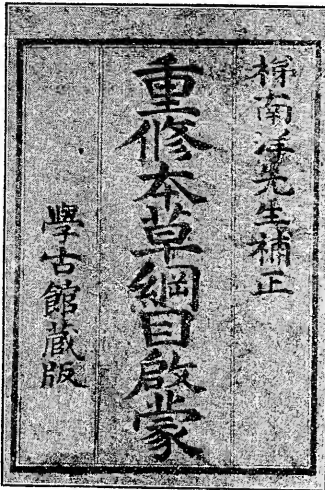 梯南洋先生補正
重修本草綱目啟蒙
學古館蔵版